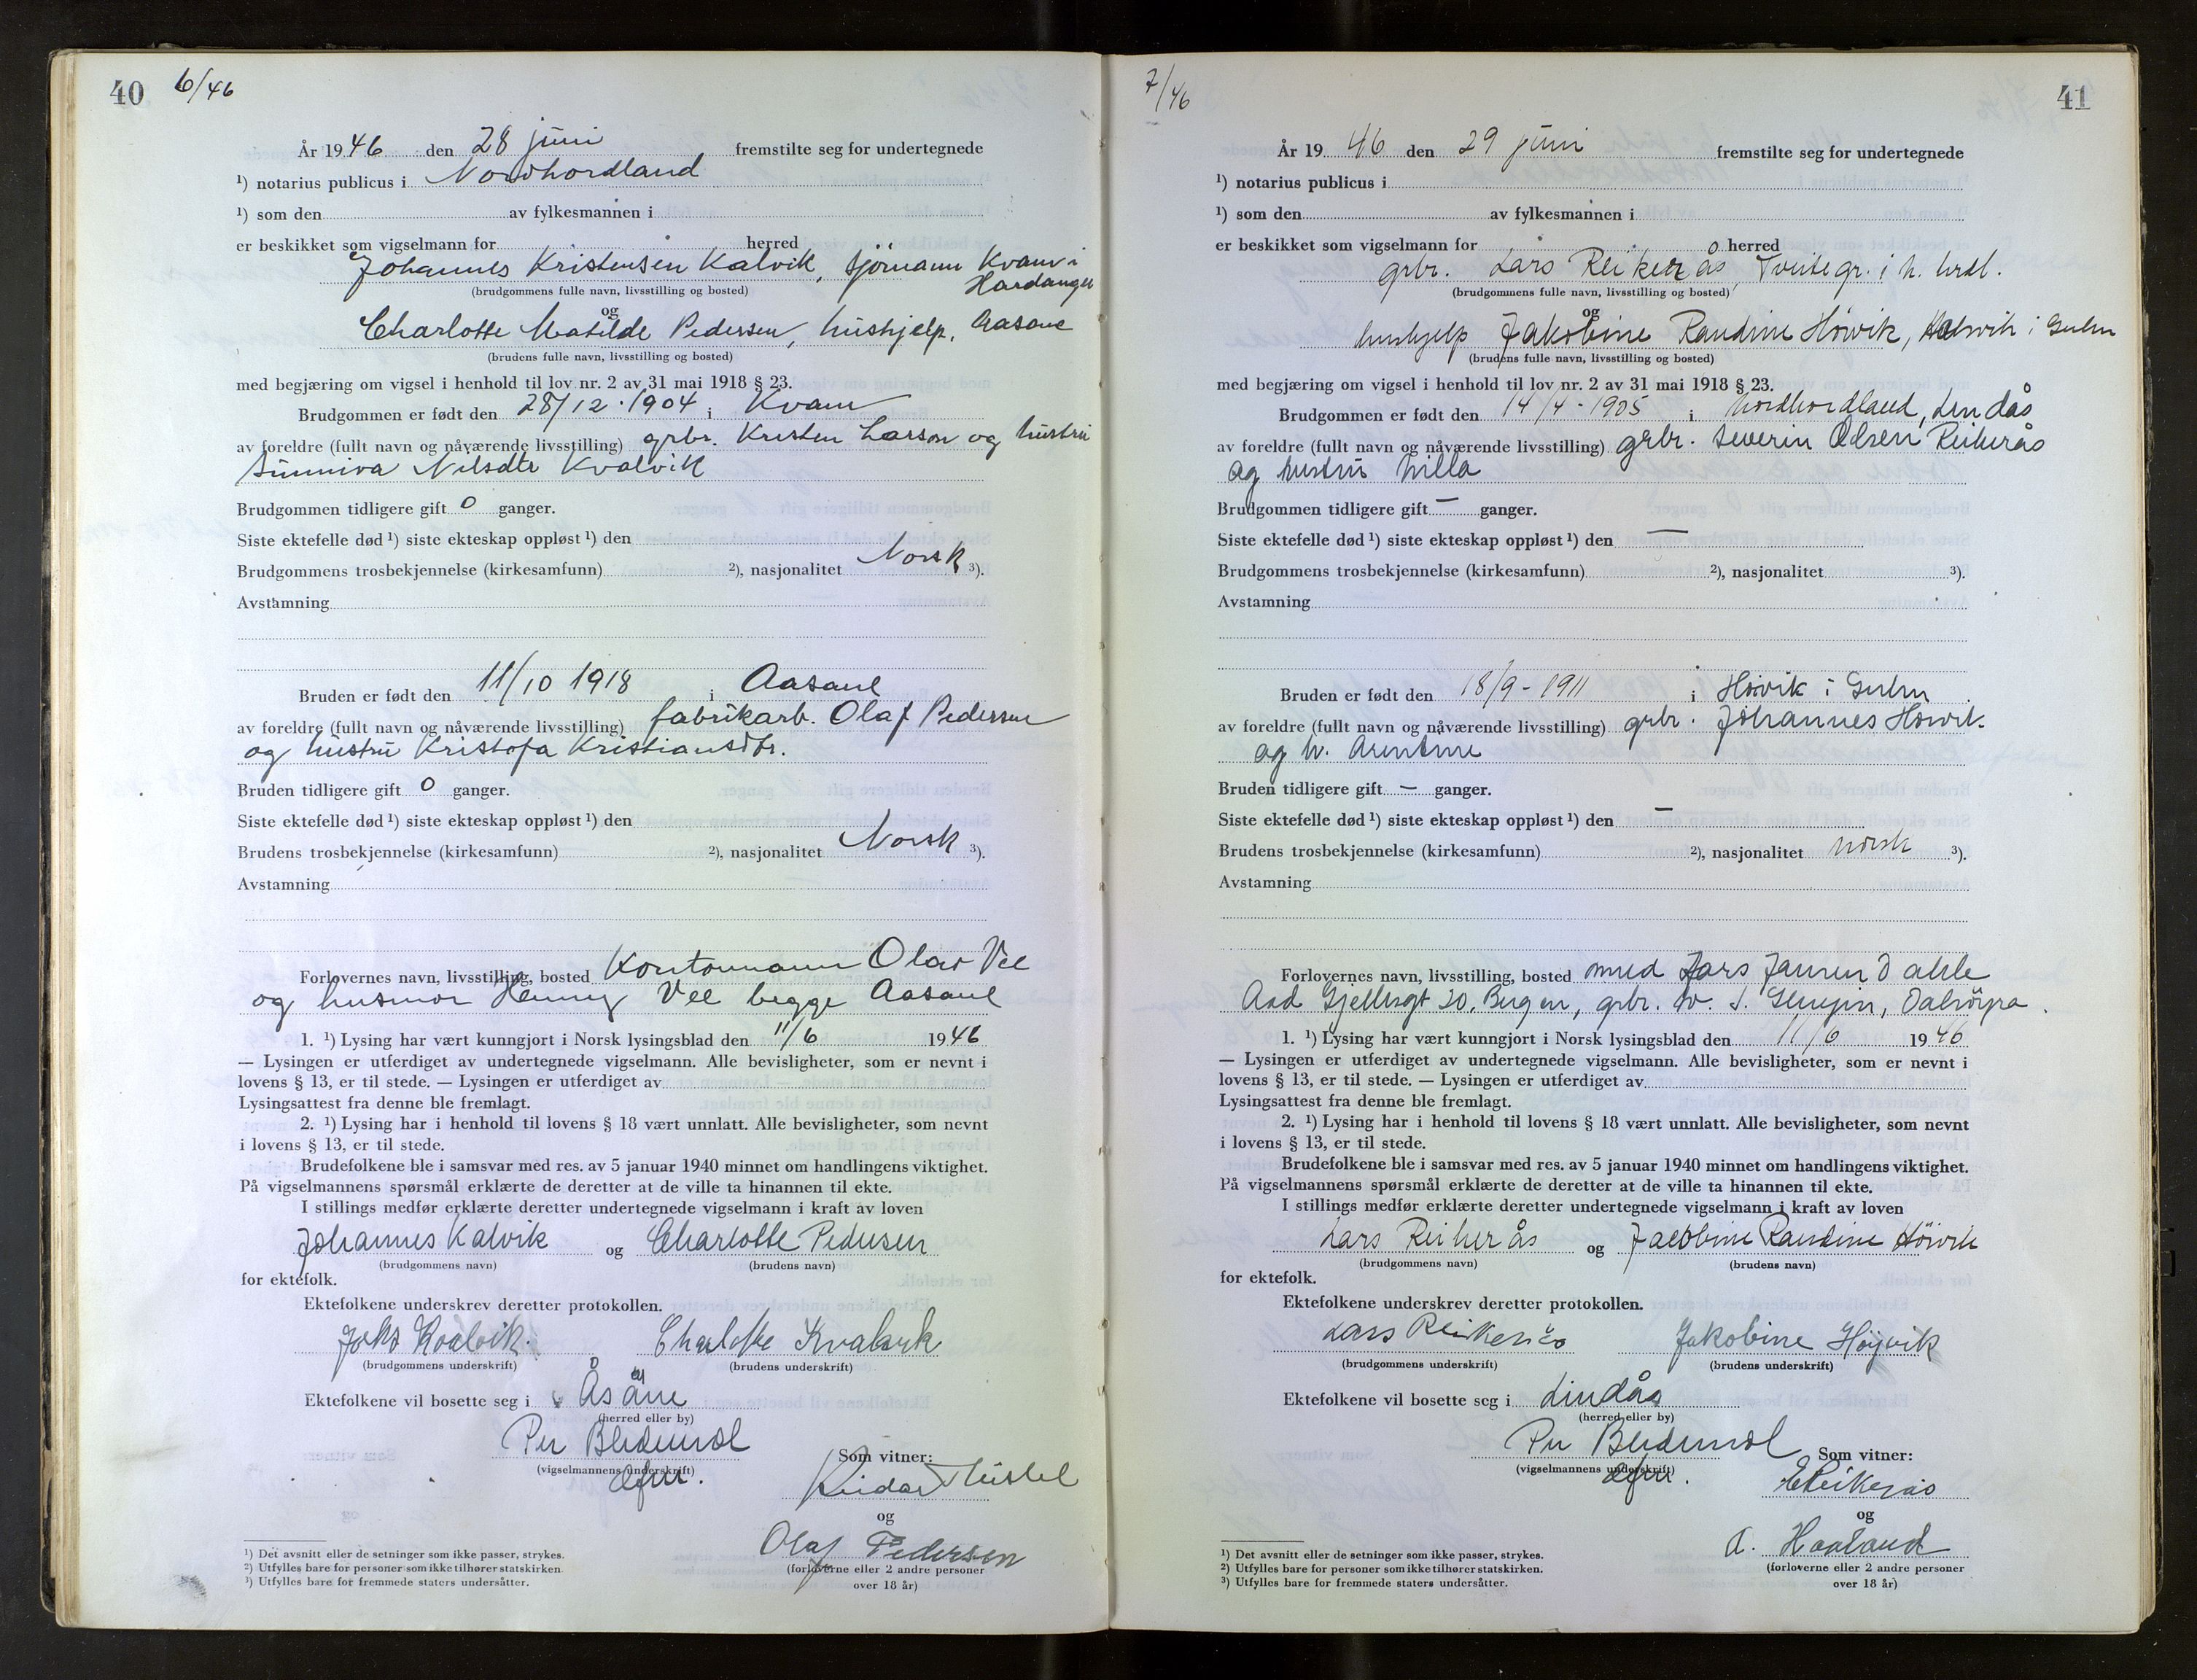 40 6/46
År 1946 den 28 juni fremstilte seg for undertegnede
¹) notarius publicus i Nordhordland
¹) som den av fylkesmannen i
er beskikket som vigselmann for herred
Johannes Kristensen Kalvik, sjömann Kvam i
Hardanger
(brudgommens fulle navn, livsstilling og bosted)
og
Charlotte Matilde Pedersen, hushjelp, Aasane
(brudens fulle navn, livsstilling og bosted)
med begjæring om vigsel i henhold til lov nr. 2 av 31 mai 1918 § 23.
Brudgommen er født den 28/12-1904 i Kvam
av foreldre (fullt navn og nåværende livsstilling) grbr. Kristen Larson og hustru
Sunniva Nilsdtr Kvalvik
Brudgommen tidligere gift 0 ganger.
Siste ektefelle død ¹) siste ekteskap oppløst ¹) den
Brudgommens trosbekjennelse (kirkesamfunn) ²), nasjonalitet Norsk ³).
Avstamning
Bruden er født den 11/10 1918 i Aasane
av foreldre (fullt navn og nåværende livsstilling) fabrikarb. Olaf Pedersen
og hustru Kristofa Kristiansdtr.
Bruden tidligere gift 0 ganger.
Siste ektefelle død ¹) siste ekteskap oppløst ¹) den
Brudens trosbekjennelse (kirkesamfunn) ²), nasjonalitet Norsk ³).
Avstamning
Forlovernes navn, livsstilling, bosted Kontormann Olav Vee
og husmor Henny Vee begge Aasane
1. ¹) Lysing har vært kunngjort i Norsk lysingsblad den 11/6 1946
— Lysingen er utferdiget av undertegnede vigselmann. Alle bevisligheter, som er nevnt i
lovens § 13, er til stede. — Lysingen er utferdiget av
Lysingsattest fra denne ble fremlagt.
2. ¹) Lysing har i henhold til lovens § 18 vært unnlatt. Alle bevisligheter, som nevnt
i lovens § 13, er til stede.
Brudefolkene ble i samsvar med res. av 5 januar 1940 minnet om handlingens viktighet.
På vigselmannens spørsmål erklærte de deretter at de ville ta hinannen til ekte.
I stillings medfør erklærte deretter undertegnede vigselmann i kraft av loven
Johannes Kalvik og Charlotte Pedersen
(brudgommens navn) (brudens navn)
for ektefolk.
Ektefolkene underskrev deretter protokollen.
Johs Kvalvik. Charlotte Kvalvik
(brudgommens underskrift) (brudens underskrift)
Ektefolkene vil bosette seg i Åsane
(herred eller by)
Som vitner:
(vigselmannens underskrift)
Reidar
og
Olaf Pedersen
(forloverne eller 2 andre personer
over 18 år)
¹) Det avsnitt eller de setninger som ikke passer, strykes.
²) Utfylles bare for personer som ikke tilhører statskirken.
³) Utfylles bare for fremmede staters undersåtter.
7/46 41
År 1946 den 29 juni fremstilte seg for undertegnede
¹) notarius publicus i
¹) som den av fylkesmannen i
er beskikket som vigselmann for herred
grbr. Lars Reikerås, Tveitegr. i n. hrdl.
(brudgommens fulle navn, livsstilling og bosted)
og
hushjelp Jakobine Randine Höivik, i Gulen
(brudens fulle navn, livsstilling og bosted)
med begjæring om vigsel i henhold til lov nr. 2 av 31 mai 1918 § 23.
Brudgommen er født den 14/4-1905 i Nordhordland, Lindås
av foreldre (fullt navn og nåværende livsstilling) grbr. Severin Olsen Reikerås
og hustru Lilla
Brudgommen tidligere gift — ganger.
Siste ektefelle død ¹) siste ekteskap oppløst ¹) den —
Brudgommens trosbekjennelse (kirkesamfunn) ²), nasjonalitet ³).
Avstamning
Bruden er født den 18/9-1911 i Höivik i Gulen
av foreldre (fullt navn og nåværende livsstilling) grbr. Johannes Höivik
og h. Arentine
Bruden tidligere gift — ganger.
Siste ektefelle død ¹) siste ekteskap oppløst ¹) den —
Brudens trosbekjennelse (kirkesamfunn) ²), nasjonalitet norsk ³).
Avstamning
Forlovernes navn, livsstilling, bosted Lars Jansen Dahle
Aad Gjellesgt 20, Bergen, grbr. Dalsöyra.
1. ¹) Lysing har vært kunngjort i Norsk lysingsblad den 11/6 1946
— Lysingen er utferdiget av undertegnede vigselmann. Alle bevisligheter, som er nevnt i
lovens § 13, er til stede. — Lysingen er utferdiget av
Lysingsattest fra denne ble fremlagt.
2. ¹) Lysing har i henhold til lovens § 18 vært unnlatt. Alle bevisligheter, som nevnt
i lovens § 13, er til stede.
Brudefolkene ble i samsvar med res. av 5 januar 1940 minnet om handlingens viktighet.
På vigselmannens spørsmål erklærte de deretter at de ville ta hinannen til ekte.
I stillings medfør erklærte deretter undertegnede vigselmann i kraft av loven
Lars Reikerås og Jacobine Randine Höivik
(brudgommens navn) (brudens navn)
for ektefolk.
Ektefolkene underskrev deretter protokollen.
Lars Reikerås Jakobine Höyvik
(brudgommens underskrift) (brudens underskrift)
Ektefolkene vil bosette seg i Lindås
(herred eller by)
Som vitner:
(vigselmannens underskrift)
E Reikerås
og
A. Haaland
(forloverne eller 2 andre personer
over 18 år)
¹) Det avsnitt eller de setninger som ikke passer, strykes.
²) Utfylles bare for personer som ikke tilhører statskirken.
³) Utfylles bare for fremmede staters undersåtter.